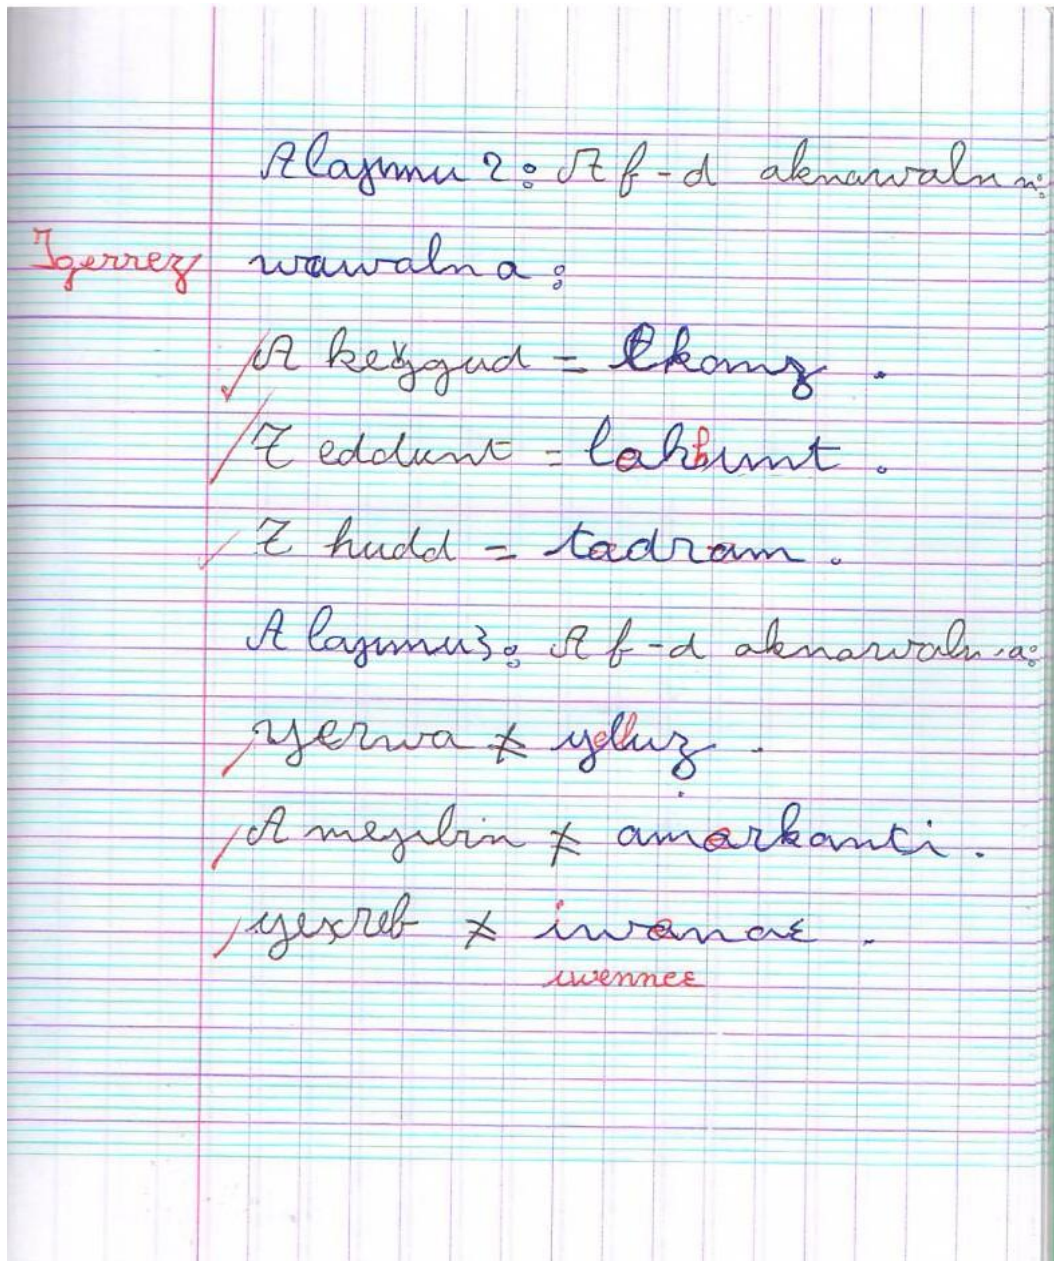 Alaɣmu 2: Af-d aknawaln n:
Igerrez wawalna:
Akeɣɣud = lkanz.
Teddunt = lakhunt.
Thudd = tadram.
Alaɣmu 3: Af-d aknawaln-a:
yerwa ≠ yelluz.
Ameɣbin ≠ amarkanti.
yexreb ≠ iwanaɛ.
iwenneɛ